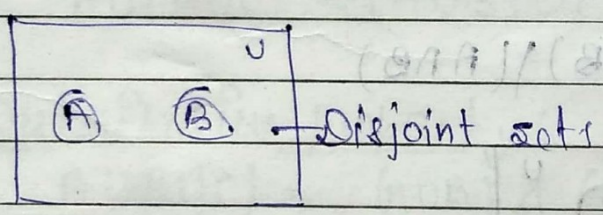 U
A B Disjoint sets